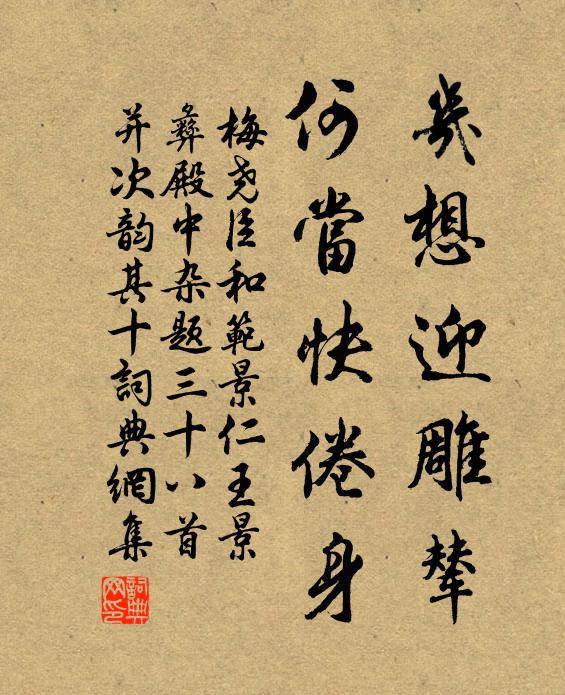 幾想迎雕輦
何當快倦身
梅尧臣和範景仁王景
彝殿中杂题三十八首
并次韵其十詞典網集
詞典网印